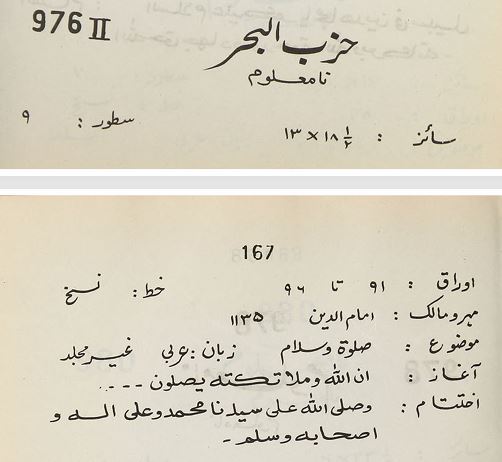 976 II
حزب البحر
نامعلوم
سائز : ۱۸ ۱/۲ × ۱۳ سطور : ۹
167
اوراق : ۹۱ تا ۹۶ خط : نسخ
مہرومالک : امام الدین ۱۱۳۵
موضوع : صلوة وسلام زبان : عربی غیر مجلد
آغاز : ان الله وملائكته يصلون ----
اختتام : وصلى الله على سيدنا محمد وعلى اله و
اصحابه وسلم -